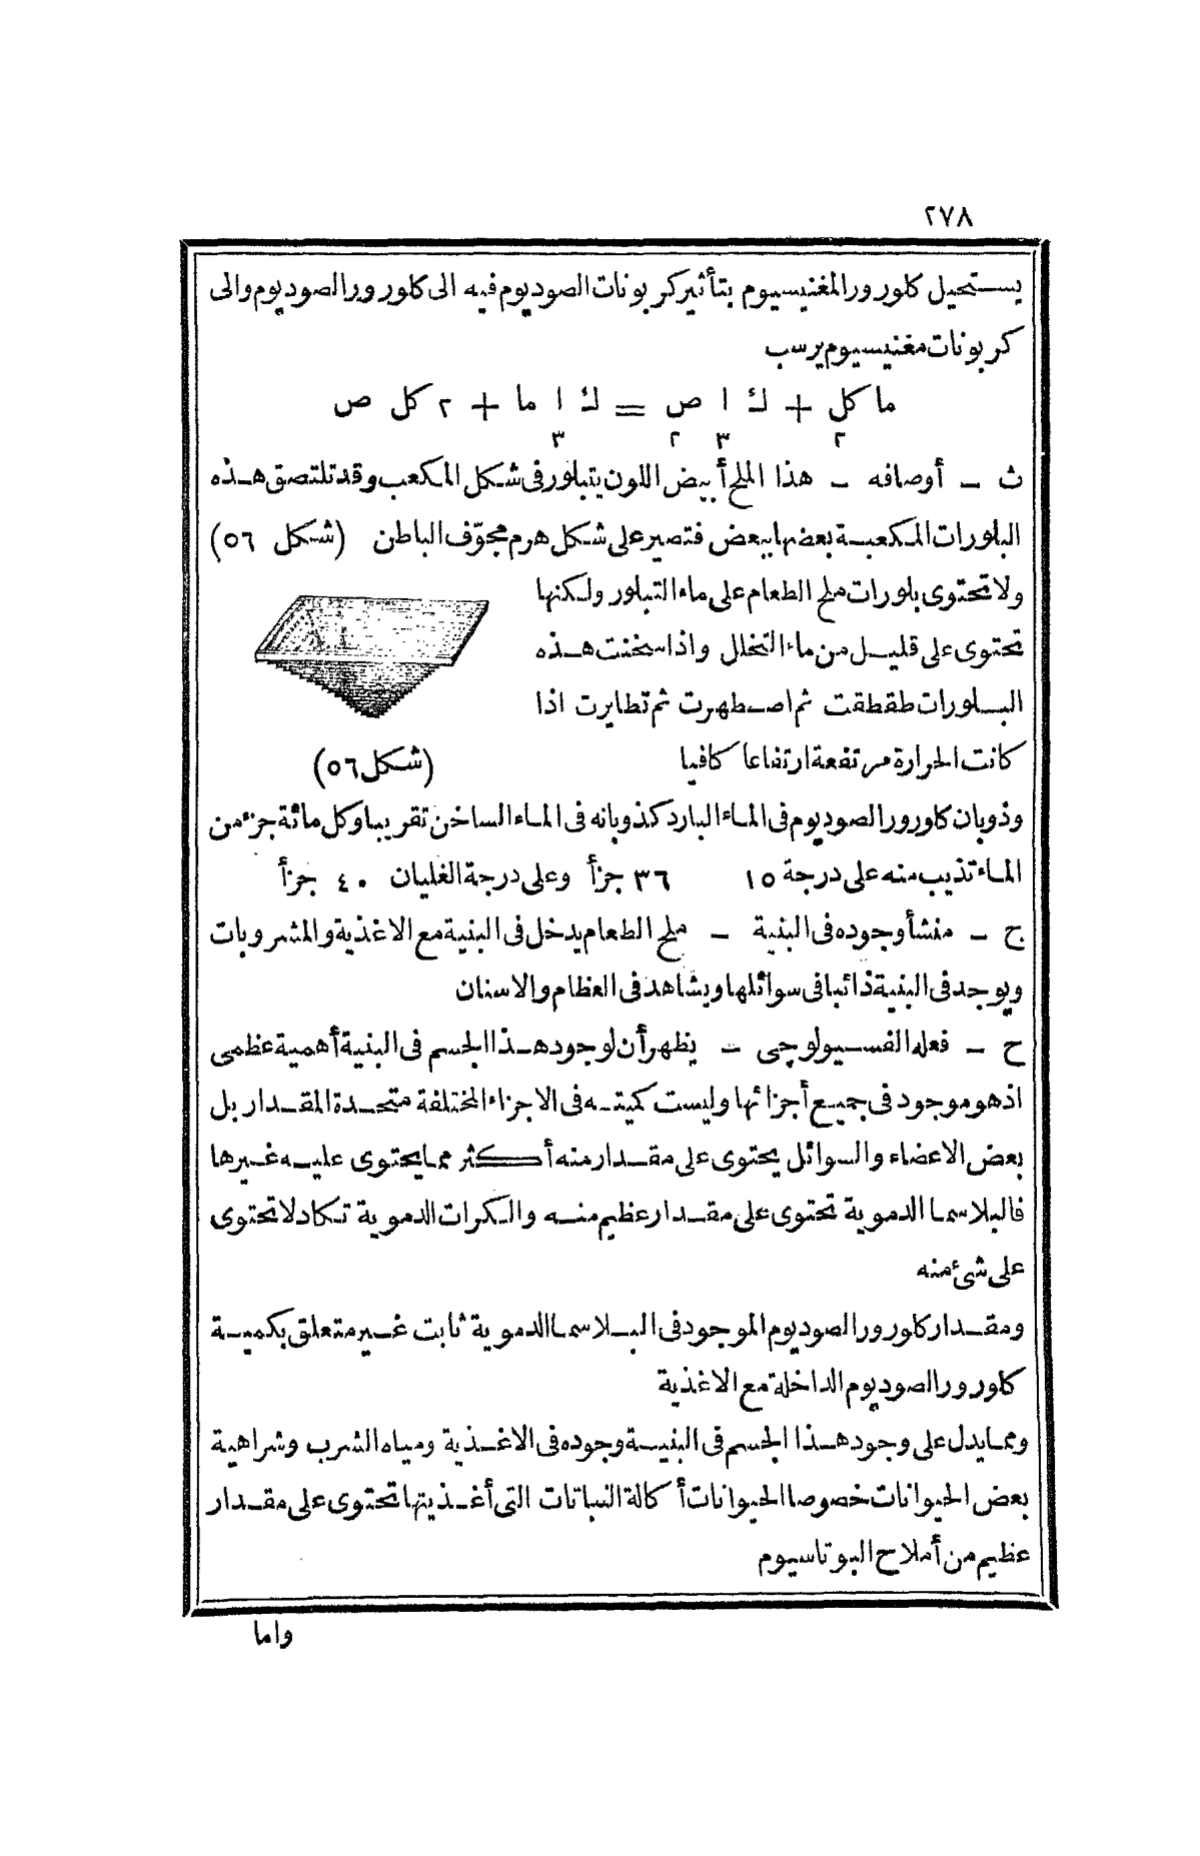 ٢٧٨
يستحيل كلورور المغنيسيوم بتأثير كربونات الصوديوم فيه الى كلورور الصوديوم والى
كربونات مغنيسيوم يرسب
ما كل + ك ا ص = ك ا ما + ٢ كل ص
٢ ٣ ٢ ٣
ث - أوصافه - هذا الملح أبيض اللون يتبلور فى شكل المكعب وقد تلتصق هذه
البلورات المكعبة بعضها ببعض فتصير على شكل هرم مجوّف الباطن (شكل ٥٦)
ولا تحتوى بلورات ملح الطعام على ماء التبلور ولكنها
تحتوى على قليل من ماء التخلل واذا سخنت هذه
البلورات طقطقت ثم اصطهرت ثم تطايرت اذا
كانت الحرارة مرتفعة ارتفاعا كافيا
(شكل ٥٦)
وذوبان كلورور الصوديوم فى الماء البارد كذوبانه فى الماء الساخن تقريبا وكل مائة جزء من
الماء تذيب منه على درجة ١٥ ٣٦ جزأ وعلى درجة الغليان ٤٠ جزأ
ج - منشأ وجوده فى البنية - ملح الطعام يدخل فى البنية مع الاغذية والمشروبات
ويوجد فى البنية ذائبا فى سوائلها ويشاهد فى العظام والاسنان
ح - فعله الفسيولوجى - يظهر أن لوجود هذا الجسم فى البنية أهمية عظمى
اذ هو موجود فى جميع أجزائها وليست كميته فى الاجزاء المختلفة متحدة المقدار بل
بعض الاعضاء والسوائل يحتوى على مقدار منه أكثر مما يحتوى عليه غيرها
فالبلاسما الدموية تحتوى على مقدار عظيم منه والكرات الدموية تكاد لا تحتوى
على شئ منه
ومقدار كلورور الصوديوم الموجود فى البلاسما الدموية ثابت غير متعلق بكمية
كلورور الصوديوم الداخلة مع الاغذية
ومما يدل على وجود هذا الجسم فى البنية وجوده فى الاغذية ومياه الشرب وشراهية
بعض الحيوانات خصوصا الحيوانات أكالة النباتات التى أغذيتها تحتوى على مقدار
عظيم من أملاح البوتاسيوم
واما